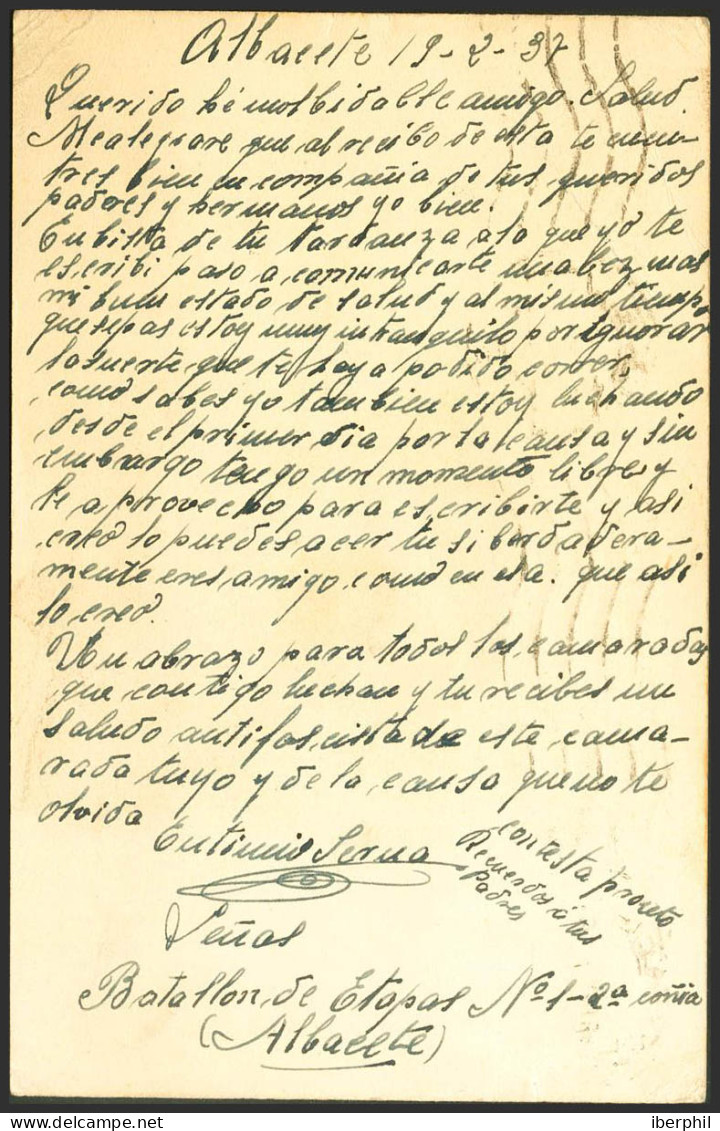 Albacete 19-2-37
Querido hé inolbidable amigo. Salud.
Mealegrare que al recibo de esta te encuen-
tres bien en compañia de tus queridos
padores y hermanos yo bien.
En bista de tu tardanza alo que yo te
escribi paso a comunicarte una bez mas
mi buen estado de salud y al mismo tiempo
que sepas estoy muy intranquilo por ignorar
la suerte que te haya podido correr,
como sabes yo tambien estoy luchando
desde el primer dia por la causa y sin
embargo tengo un momento libre y
le aprovecho para escribirte y asi
creo lo puedes acer tu si berdadera-
mente eres amigo como en esa. que asi
lo creo.
Un abrazo para todos los camaradas
que contigo luchan y tu recibes un
saludo antifascista de este cama-
rada tuyo y de la causa que no te
olvida
Eutimio Serna
contesta pronto
Recuerdos á tus
padres
Señas
Batallon de Etapas Nº 1-2ª coñia
(Albacete)
Delcampe.net
iberphil